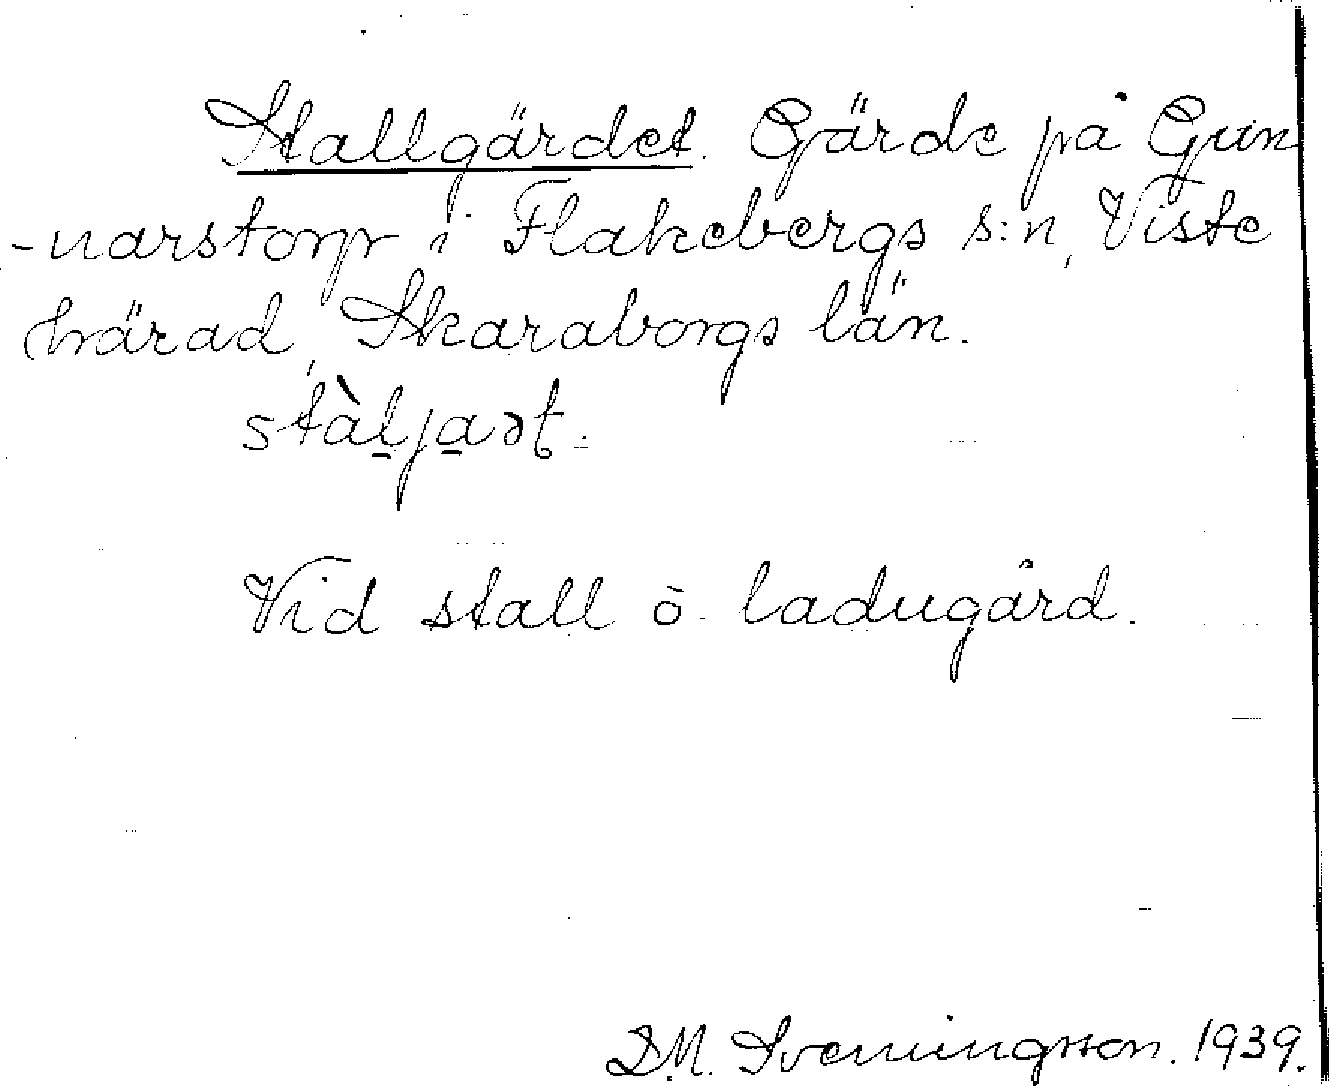 Stallgärdet. Gärde på Gun
-narstorp i Flakebergs s:n, Viste
härad, Skaraborgs län.
stàl̲ja̲ɔt.
Vid stall o. ladugård.
D.M. Sveningsson. 1939.